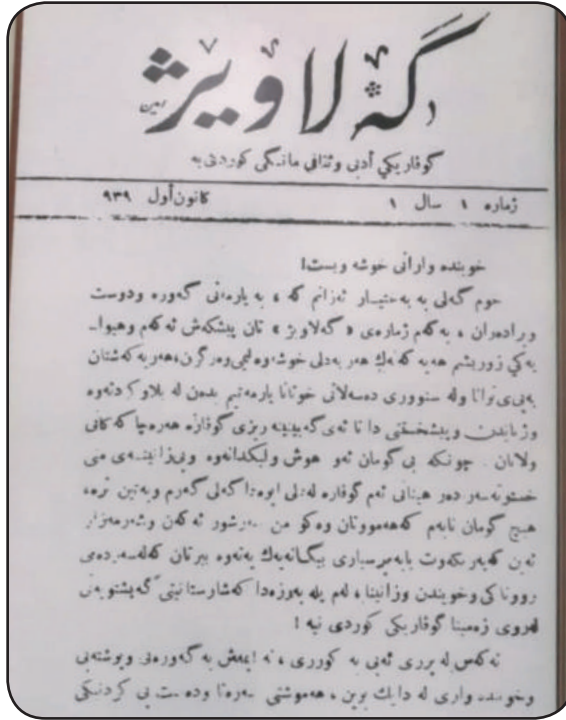 گەلاوێژ
گوڤاریکي أدبی وثقافی مانگی کوردی یە
ژمارە ١ سال ١ کانون‌أول ٩٣٩
خویندە وارانی خوشە ویست!
خوم گەلی بە بەختیار ئەزانم کە ، بە یارمەتی گەورە ودوست
وبرادەران ، یەکەم ژمارەی « گەلاویژ » تان پیشکەش ئەکەم وهیوا۔
یەکي زوریشم هەیە کەنەك هەر بەدلی خوشەوە لیمی وەرگرن،هەر بەکەشتان
بەپی‌ی توانا ولە سنووری دەسەلاتی خوتانا یارمەتیم بدەن لە بلاو کردنەوە
وژیاندن وپیشخستنی دا تا ئەی گەیینینە ریزی گوڤارە هەرەچا کەکانی
ولاتان . چونکە بی گومان ئەو هوش ولیکدانەوە و زانینە‌ی منی
خستونەسەر دەر هینانی ئەم گوڤارە لەدلی ایوەدا گەلی گەرم وبەتین ترە
هیچ گومان نابەم کەهەمووتان وەکو من سەرشور ئەکەن وشەرمەزار
ئەبن کەبەر بکەوت بابەپرسیاری بیگانەیەك بەتەوە بیرتان کەلەسەردەمی
روونا کی وخویندن وزانینا ، لەم پلە بەرزەدا کەشارستانیتی گەیشتویەتی
لەروی زەمینا گوڤاریکی کوردی نیە !
نە کەس لە بڕری ئەبی بە کوڕری ، نە ایمەش بە گەورەیی وبوشتەیی
وخویندە واری لە دایك بوین ، هەموشتی سەرەتا ودەست پی کردنیکی